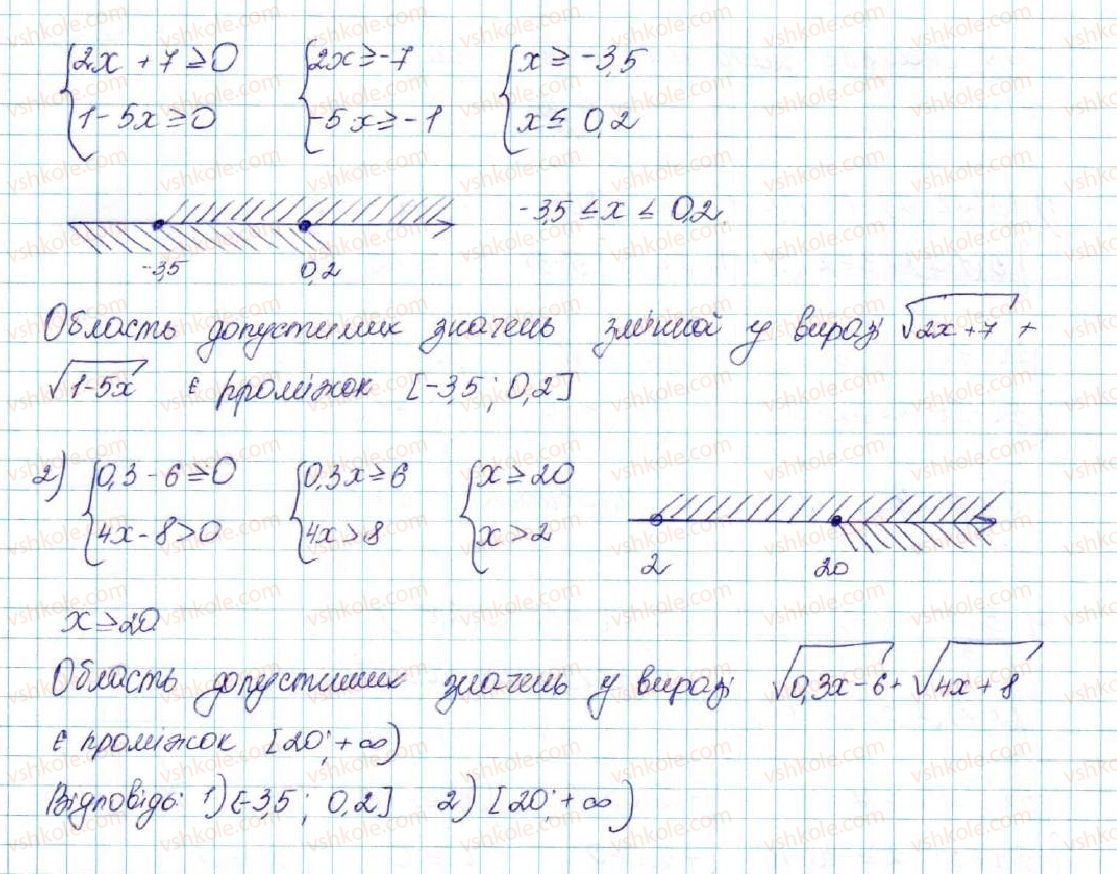 {2x + 7 ≥ 0 {2x ≥ -7 {x ≥ -3,5
{1 - 5x ≥ 0 {-5x ≥ -1 {x ≤ 0,2
-3,5 ≤ x ≤ 0,2
-3,5 0,2
Область допустимих значень змінної у виразі √2x+7 +
√1-5x є проміжок [-3,5; 0,2]
2) {0,3 - 6 ≥ 0 {0,3x ≥ 6 {x ≥ 20
{4x - 8 > 0 {4x > 8 {x > 2
2 20
x ≥ 20
Область допустимих значень у виразі √0,3x-6 + √4x+8
є проміжок [20; +∞)
Відповідь: 1) [-3,5; 0,2] 2) [20; +∞)
vshkole.com